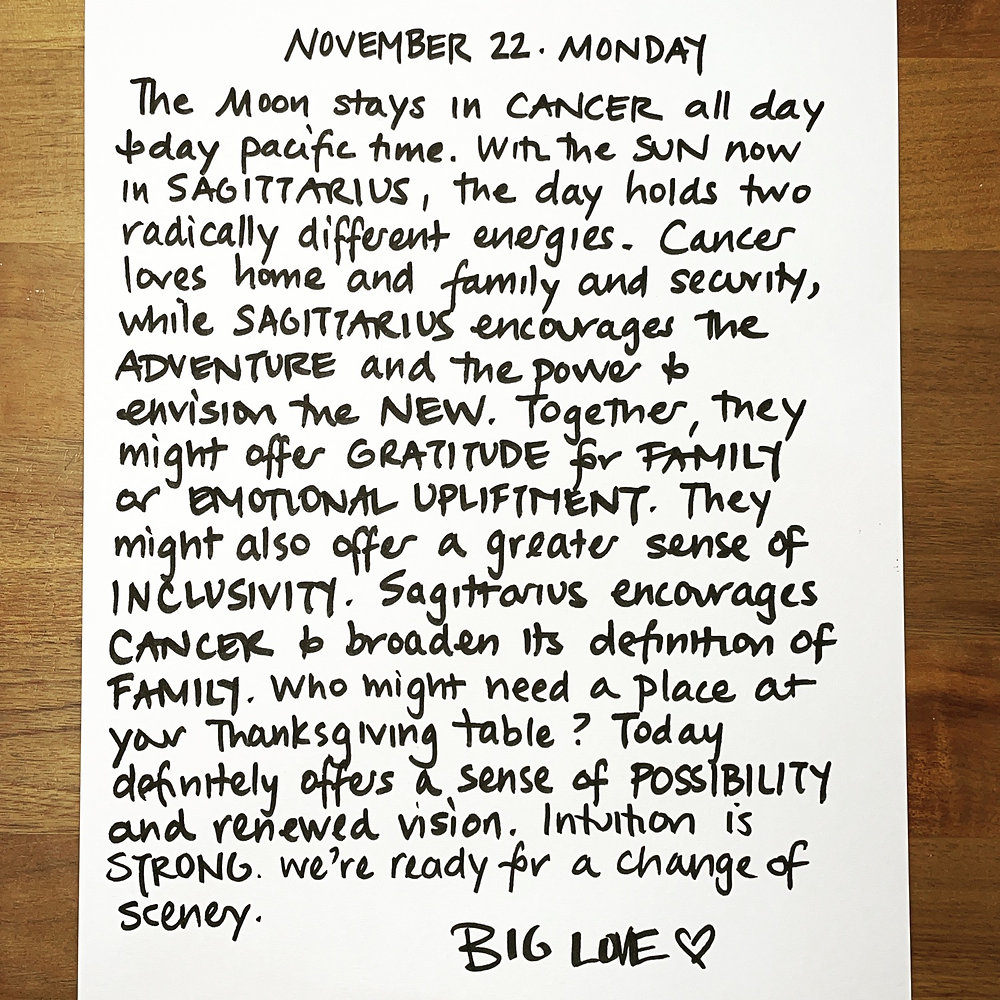 NOVEMBER 22. MONDAY
The Moon stays in CANCER all day
today pacific time. With the SUN now
in SAGITTARIUS, the day holds two
radically different energies. Cancer
loves home and family and security,
while SAGITTARIUS encourages the
ADVENTURE and the power to
envision the NEW. Together, they
might offer GRATITUDE for FAMILY
or EMOTIONAL UPLIFTMENT. They
might also offer a greater sense of
INCLUSIVITY. Sagittarius encourages
CANCER to broaden its definition of
FAMILY. Who might need a place at
your Thanksgiving table? Today
definitely offers a sense of POSSIBILITY
and renewed vision. Intuition is
STRONG. We're ready for a change of
scenery.
BIG LOVE ♡